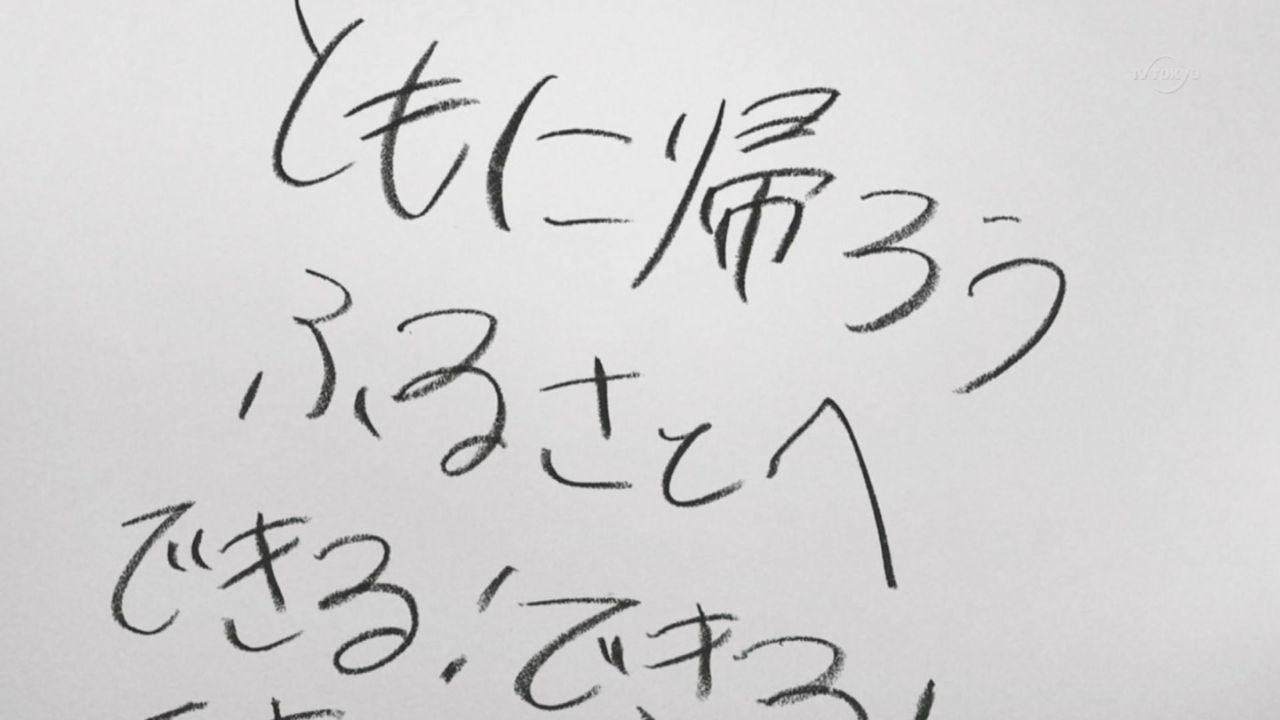 TV TOKYO
ともに帰ろう
ふるさとへ
できる!できる!